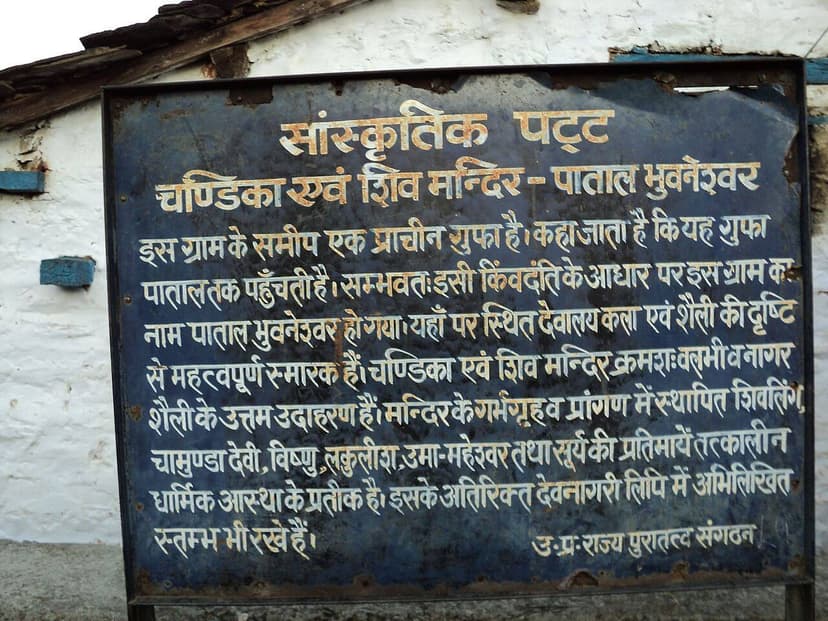 सांस्कृतिक पट्ट
चण्डिका एवं शिव मन्दिर - पाताल भुवनेश्वर
इस ग्राम के समीप एक प्राचीन गुफा है। कहा जाता है कि यह गुफा
पाताल तक पहुँचती है। सम्भवतः इसी किंवदंति के आधार पर इस ग्राम का
नाम पाताल भुवनेश्वर हो गया। यहाँ पर स्थित देवालय कला एवं शैली की दृष्टि
से महत्वपूर्ण स्मारक हैं। चण्डिका एवं शिव मन्दिर क्रमशः वलभी व नागर
शैली के उत्तम उदाहरण हैं। मन्दिर के गर्भगृह व प्रांगण में स्थापित शिवलिंग,
चामुण्डा देवी, विष्णु, लकुलीश, उमा-महेश्वर तथा सूर्य की प्रतिमायें तत्कालीन
धार्मिक आस्था के प्रतीक है। इसके अतिरिक्त देवनागरी लिपि में अभिलिखित
स्तम्भ भी रखे हैं।
उ.प्र. राज्य पुरातत्व संगठन